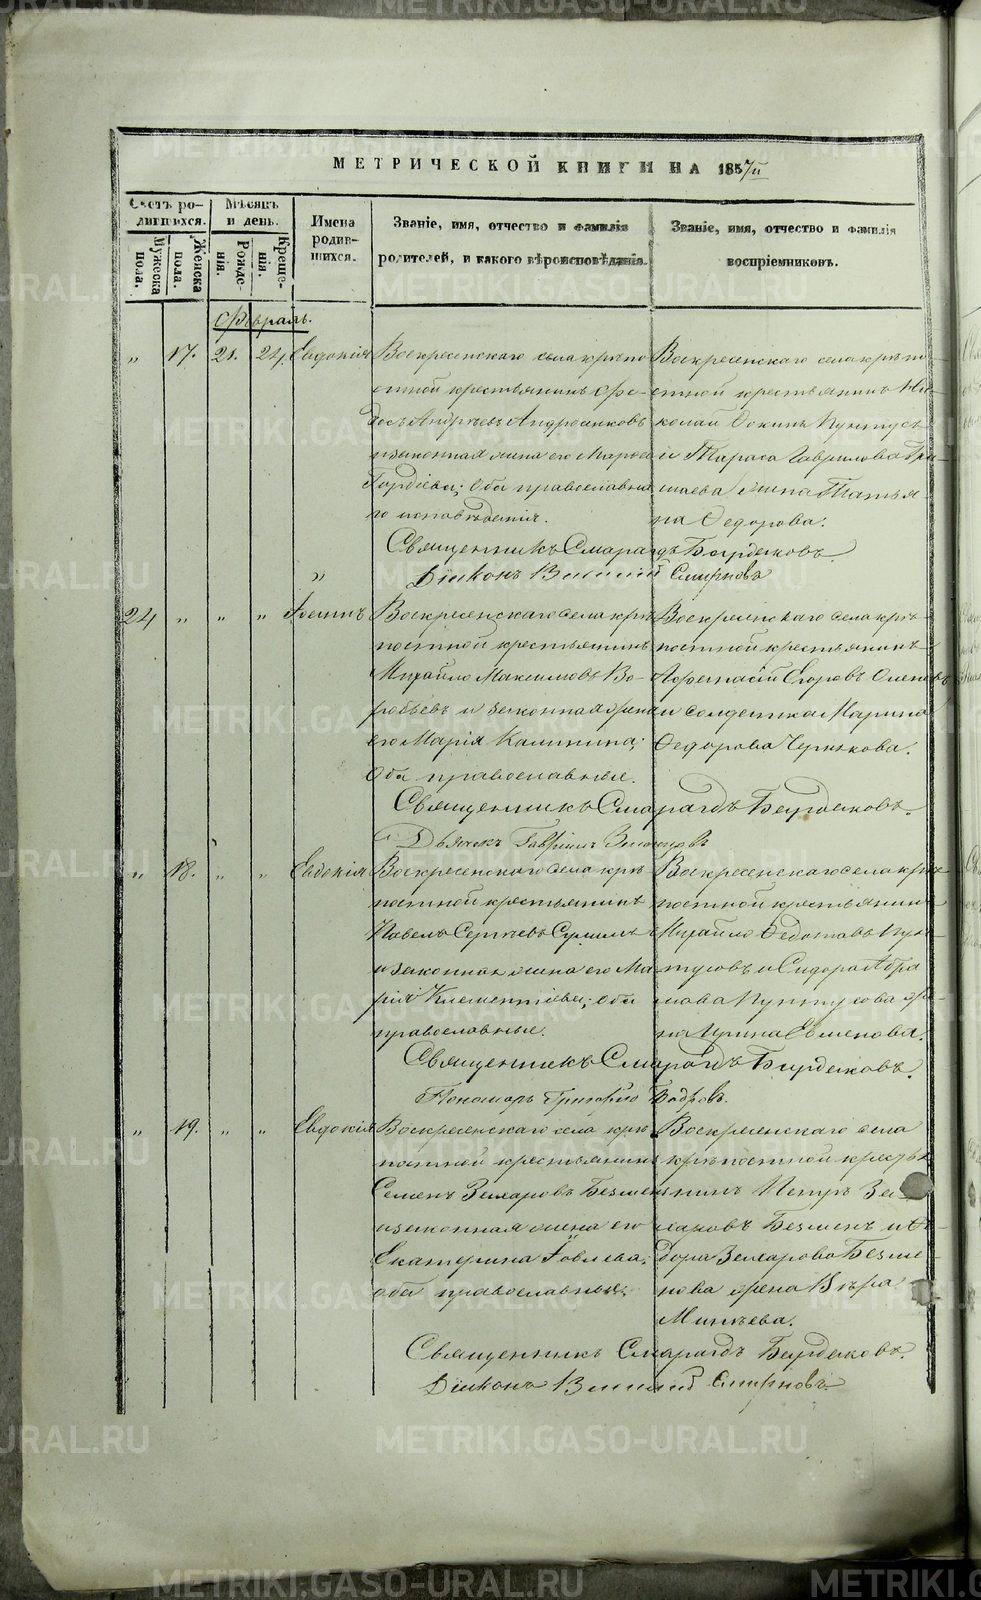 МЕТРИЧЕСКОЙ КНИГИ НА 1857й
Счетъ ро-
дившихся.
Мужеска
пола.
Женска
пола.
Мѣсяцъ
и день.
Рожде-
нія.
Креще-
нія.
Имена
родив-
шихся.
Званіе, имя, отчество и фамилія
родителей, и какого вѣроисповѣданія.
Званіе, имя, отчество и фамилія
воспріемниковъ.
Февраль.
„ 17. 21. 24. Евдокія
Воскресенскаго села крѣпо
стной крестьянинъ Фе-
досъ Андрѣевъ
и законная жена его Марѳа
Гордіева; Оба православна
го исповѣданія.
Воскресенскаго села крѣпо
стной крестьянинъ Ни-
колай Фокинъ
и Тараса Гаврилова Гри
жена Татья-
на Федорова.
Священникъ Смарагдъ Бурдюковъ
Діаконъ Василій Смирновъ
„
24 „ „ „
Воскресенскаго села крѣ
постной крестьянинъ
Михайло Максимовъ Во-
робьевъ и законная жена
его Марія Калинина;
Оба православные.
Воскресенскаго села крѣ-
постной крестьянинъ
Егоровъ
и солдатка Марина
Федорова
Священникъ Смарагдъ Бурдюковъ.
Дьячекъ Гавріилъ
„ 18. „ „ Евдокія
Воскресенскаго села крѣ
постной крестьянинъ
Павелъ Сергѣевъ
и законная жена его Ма
рія Клементіева; Оба
православные.
Воскресенскаго села крѣ
постной крестьянинъ
Михайло Федотовъ Пун
тусовъ и Сидора Абра
мова Пунтусова же-
на Ирина
Священникъ Смарагдъ Бурдюковъ.
Пономарь Григорій Бодровъ.
„ 19. „ „ Евдокія
Воскресенскаго села крѣ
постной крестьянинъ
Семенъ Захаровъ Безмен
и законная жена его
Екатерина Іовлева;
оба православные.
Воскресенскаго села
крѣпостной крестья
нинъ Петръ За
харовъ Безменъ и Ѳе
дора Захарова Безме
нова жена Вѣра
Минѣева.
Священникъ Смарагдъ Бурдюковъ.
Діаконъ Василій Смирновъ
METRIKI.GASO-URAL.RU